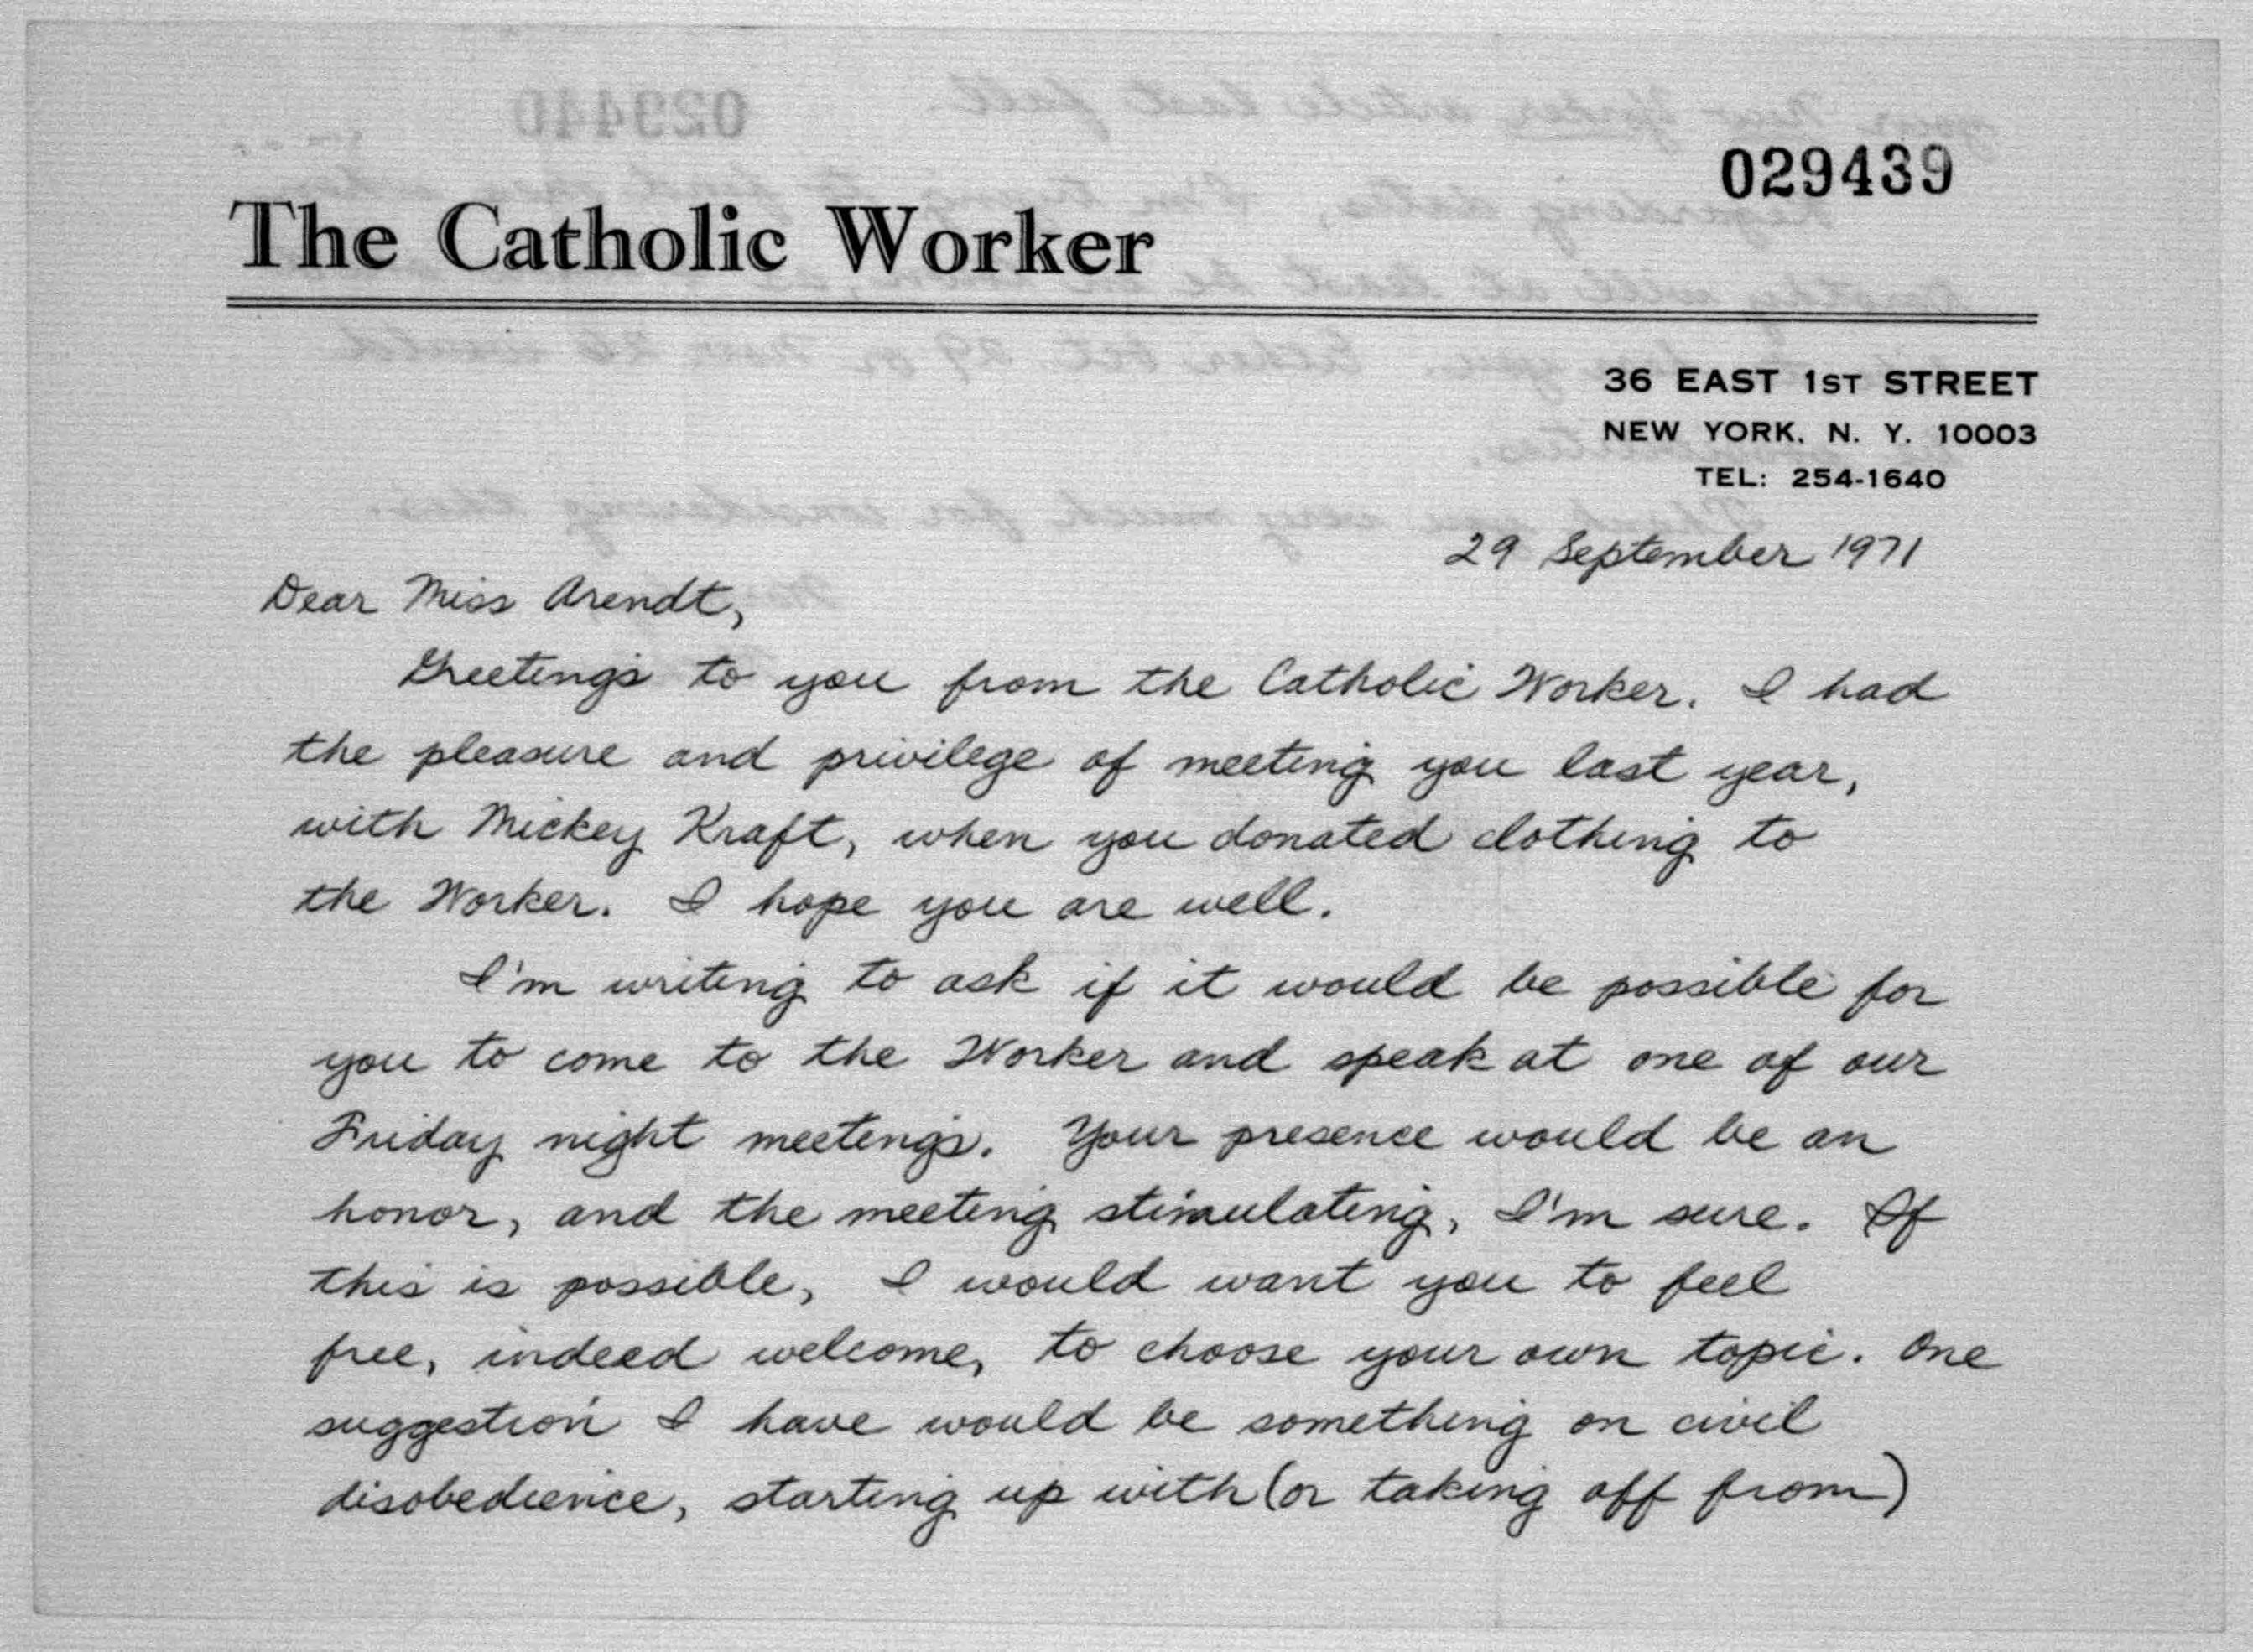 029439
The Catholic Worker
36 EAST 1ST STREET
NEW YORK, N. Y. 10003
TEL: 254-1640
29 September 1971
Dear Miss Arendt,
Greetings to you from the Catholic Worker. I had
the pleasure and privilege of meeting you last year,
with Mickey Kraft, when you donated clothing to
the Worker. I hope you are well.
I'm writing to ask if it would be possible for
you to come to the Worker and speak at one of our
Friday night meetings. Your presence would be an
honor, and the meeting stimulating, I'm sure. If
this is possible, I would want you to feel
free, indeed welcome, to choose your own topic. One
suggestion I have would be something on civil
disobedience, starting up with (or taking off from)